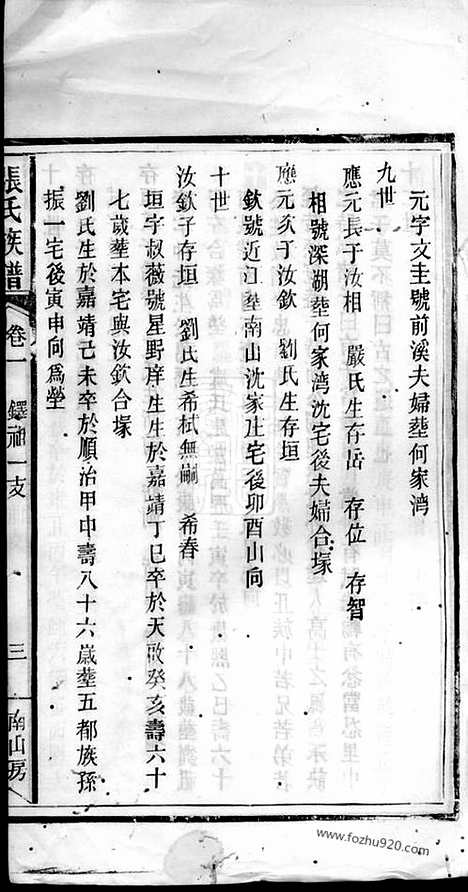 元字文圭號前溪夫婦塟何家湾
九世
應元長子汝相 嚴氏生存岳 存位 存智
相號深湖塟何家湾沈宅後夫婦合塚
應元次子汝欽 劉氏生存垣
欽號近江塟南山沈家庄宅後卯酉山向
十世
汝欽子存垣 劉氏生希栻無嗣 希春
垣字叔薇號星野庠生生於嘉靖丁巳卒於天啟癸亥壽六十
七歲塟本宅與汝欽合塚
劉氏生於嘉靖己未卒於順治甲申壽八十六歲塟五都族孫
振一宅後寅申向為塋
張氏族譜 卷一 鐸祖一支 三 南山房
www.fozhu920.com